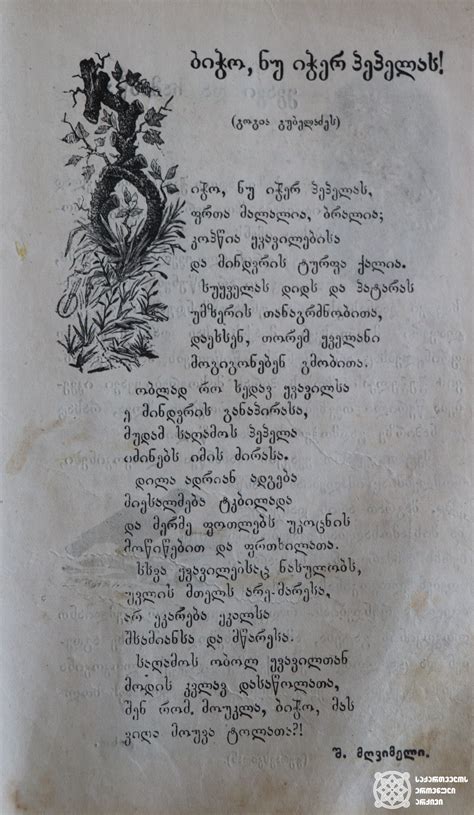 ბიჭო, ნუ იჭერ პეპელას!
(გოგია გუბელაძეს)
იჭო, ნუ იჭერ პეპელას,
ფრთა მალალია, ბრალია;
კოპწია ყვავილებისა
და მინდვრის ტურფა ქალია.
სუყველას დიდს და პატარას
უმზერის თანაგრძნობითა,
დაეხსენ, თორემ ყველანი
მოგიგონებენ გმობითა.
ობლად რო ხედავ ყვავილსა
ე მინდვრის განაპირასა,
მუდამ საღამოს პეპელა
იძინებს იმის ძირასა.
დილა ადრიან ადგება
მიესალმება ტკბილადა
და მერმე ფოთლებს უკოცნის
მოწიწებით და ფრთხილათა.
სხვა ყვავილებსაც ნახულობს,
უვლის მთელს არე-მარესა,
არ ეკარება ეკალსა
შხამიანსა და მწარესა.
საღამოს ობოლ ყვავილთან
მოდის კვლავ დასაწოლათა,
შენ რომ მოუკლა, ბიჭო, მას
ვიღა მოუვა ტოლათა?!
შ. მღვიმელი.
საქართველოს
ეროვნული
არქივი